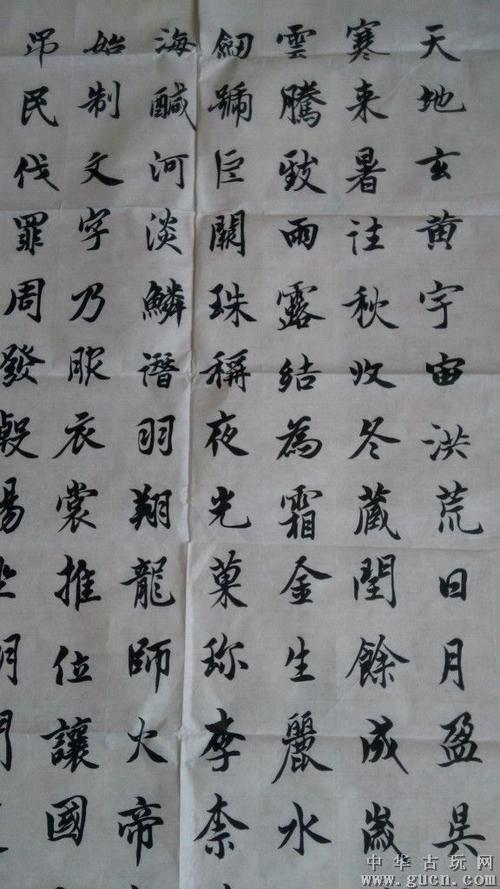 天地玄黄宇宙洪荒日月盈昃
寒来暑往秋收冬藏閏餘成歲
雲騰致雨露結為霜金生麗水
劒號巨闕珠稱夜光菓珍李柰
海鹹河淡鱗潛羽翔龍師火帝
始制文字乃服衣裳推位讓國
民伐罪周發殷湯
中华古玩网
www.gucn.com